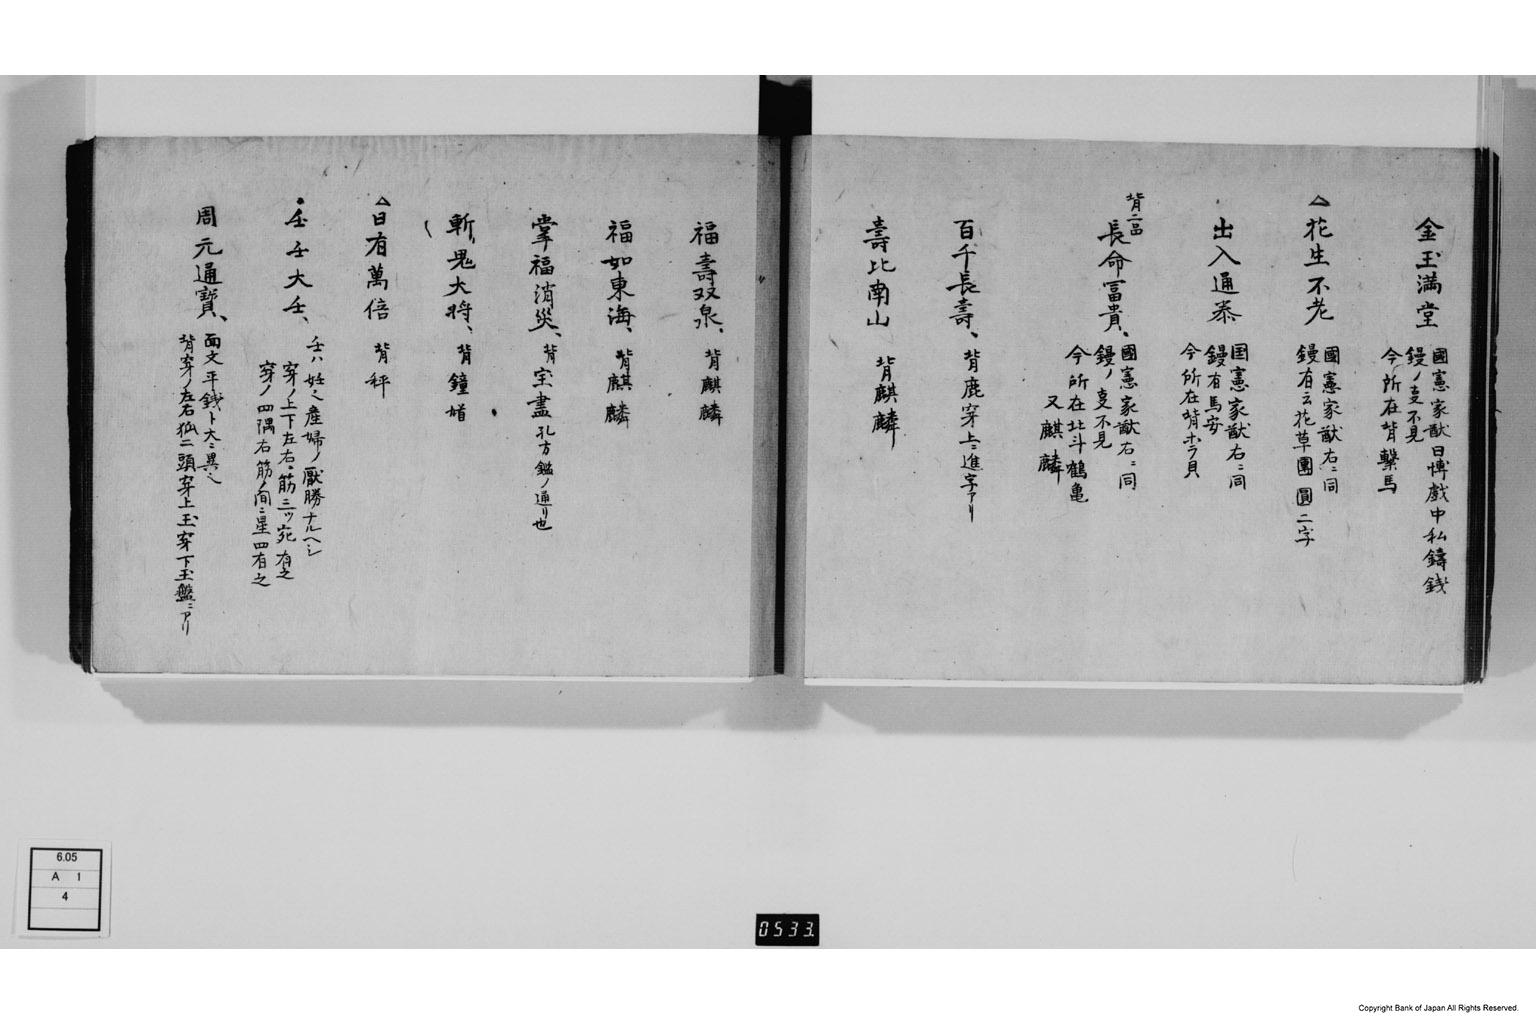 金玉満堂
國憲家猷曰博戯中私鋳銭
鏝ノ㕝不見
今所在背繋馬
△花生不老
國憲家猷右ニ同
鏝有云花草團圓二字
出入通泰
国憲家猷右ニ同
鏝有馬安
今所在背ホラ貝
背二品
長命冨貴、
國憲家猷右ニ同
鏝ノ㕝不見
今所在北斗鶴亀
又麒麟
百千長壽、背鹿穿上ニ進字アリ
壽比南山 背麒麟
福壽双泉、背麒麟
福如東海、背麒麟
掌福消災、背宝盡孔方鑑ノ通リ也
斬鬼大将、背鐘馗
△日有萬倍 背秤
壬壬大壬、
壬ハ妊也産婦ノ厭勝ナルヘシ
穿ノ上下左右ニ筋三ツ宛有之
穿ノ四隅右筋ノ間ニ星四有之
周元通寳、
面文平銭ト大ニ異也
背穿ノ左右狐二頭穿上玉穿下玉盤ニアリ
6.05
A 1
4
0533.
Copyright Bank of Japan All Rights Reserved.